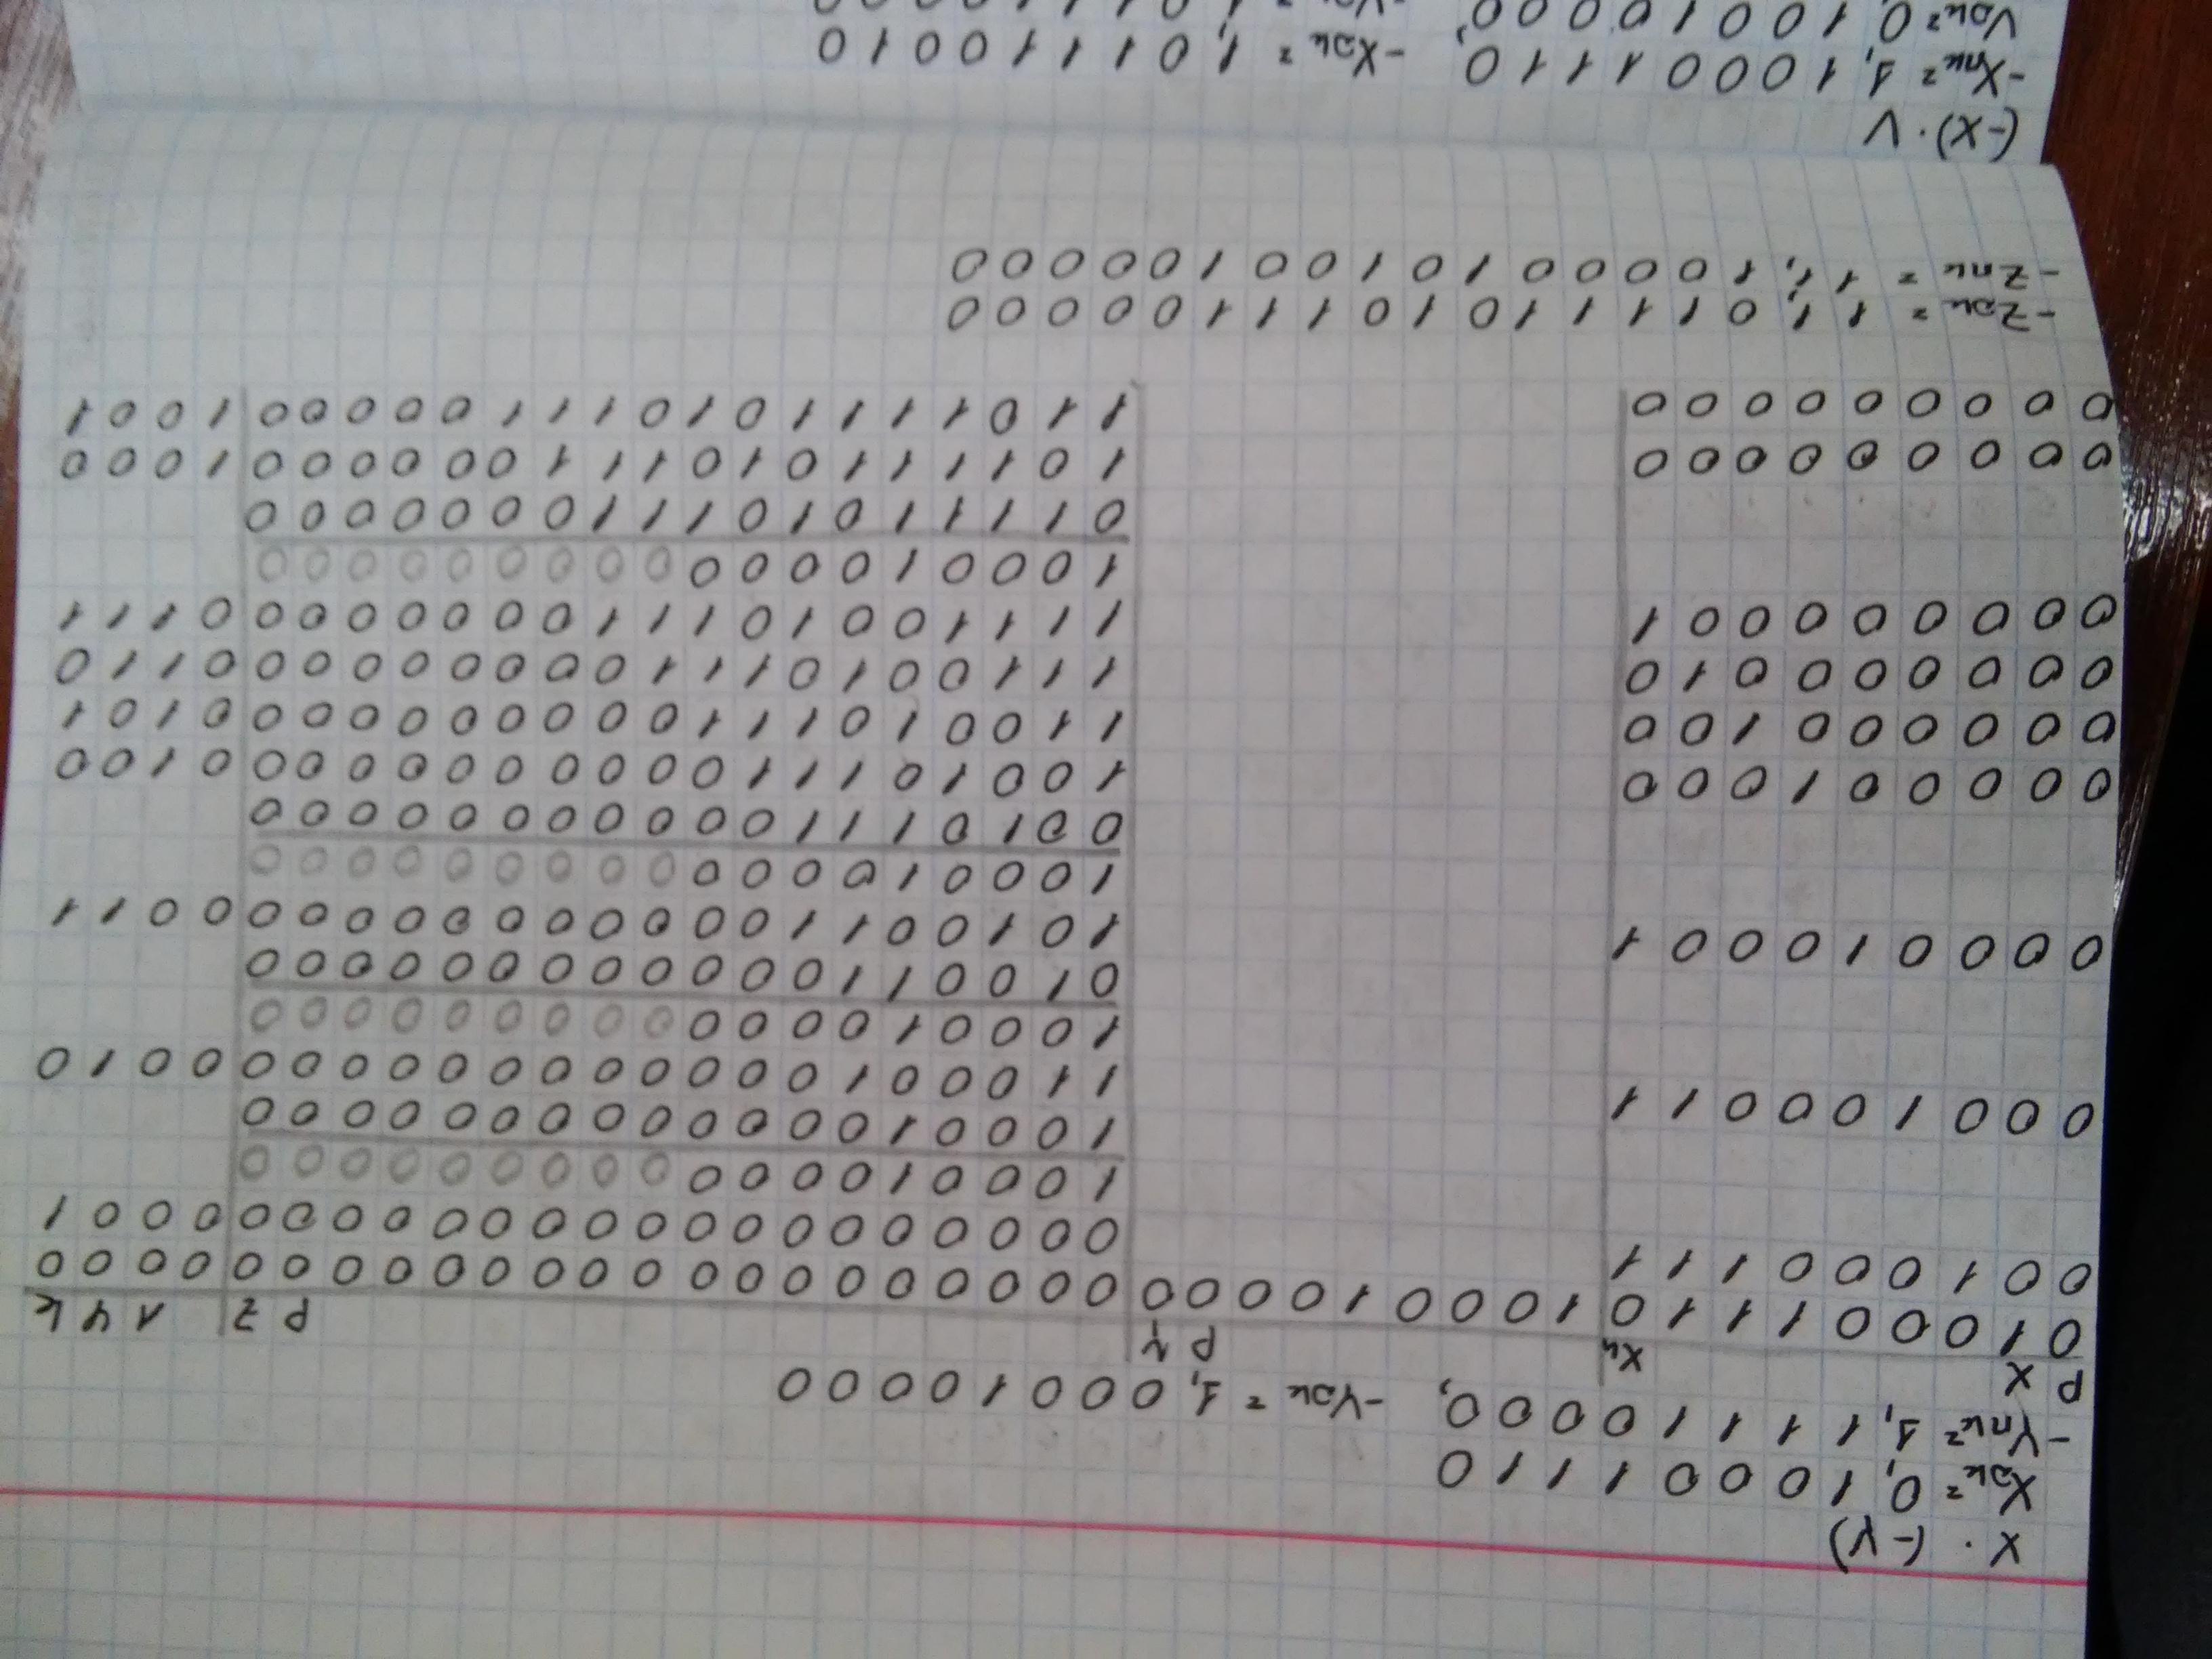 X · (-Y)
Xдк = 0,10001110
-Yпк = 1,11110000, -Yдк = 1,00010000
РХ Xн РY РZ ЛЧК
010001110 100010000 000000000000000000 0000
001000111 000000000000000000 0001
100010000000000000
000100011 100010000000000000
110001000000000000 0010
100010000000000000
010011000000000000
000010001 101001100000000000 0011
100010000000000000
001011100000000000
000001000 100101110000000000 0100
000000100 110010111000000000 0101
000000010 111001011100000000 0110
000000001 111100101110000000 0111
100010000000000000
011110101110000000
000000000 101111010111000000 1000
000000000 110111101011100000 1001
-Zдк = 11,0111101011100000
-Zпк = 11,1000010100100000
(-X) · V
-Xпк = 1,10001110, -Xдк = 1,01110010
Vдк = 0,10010000